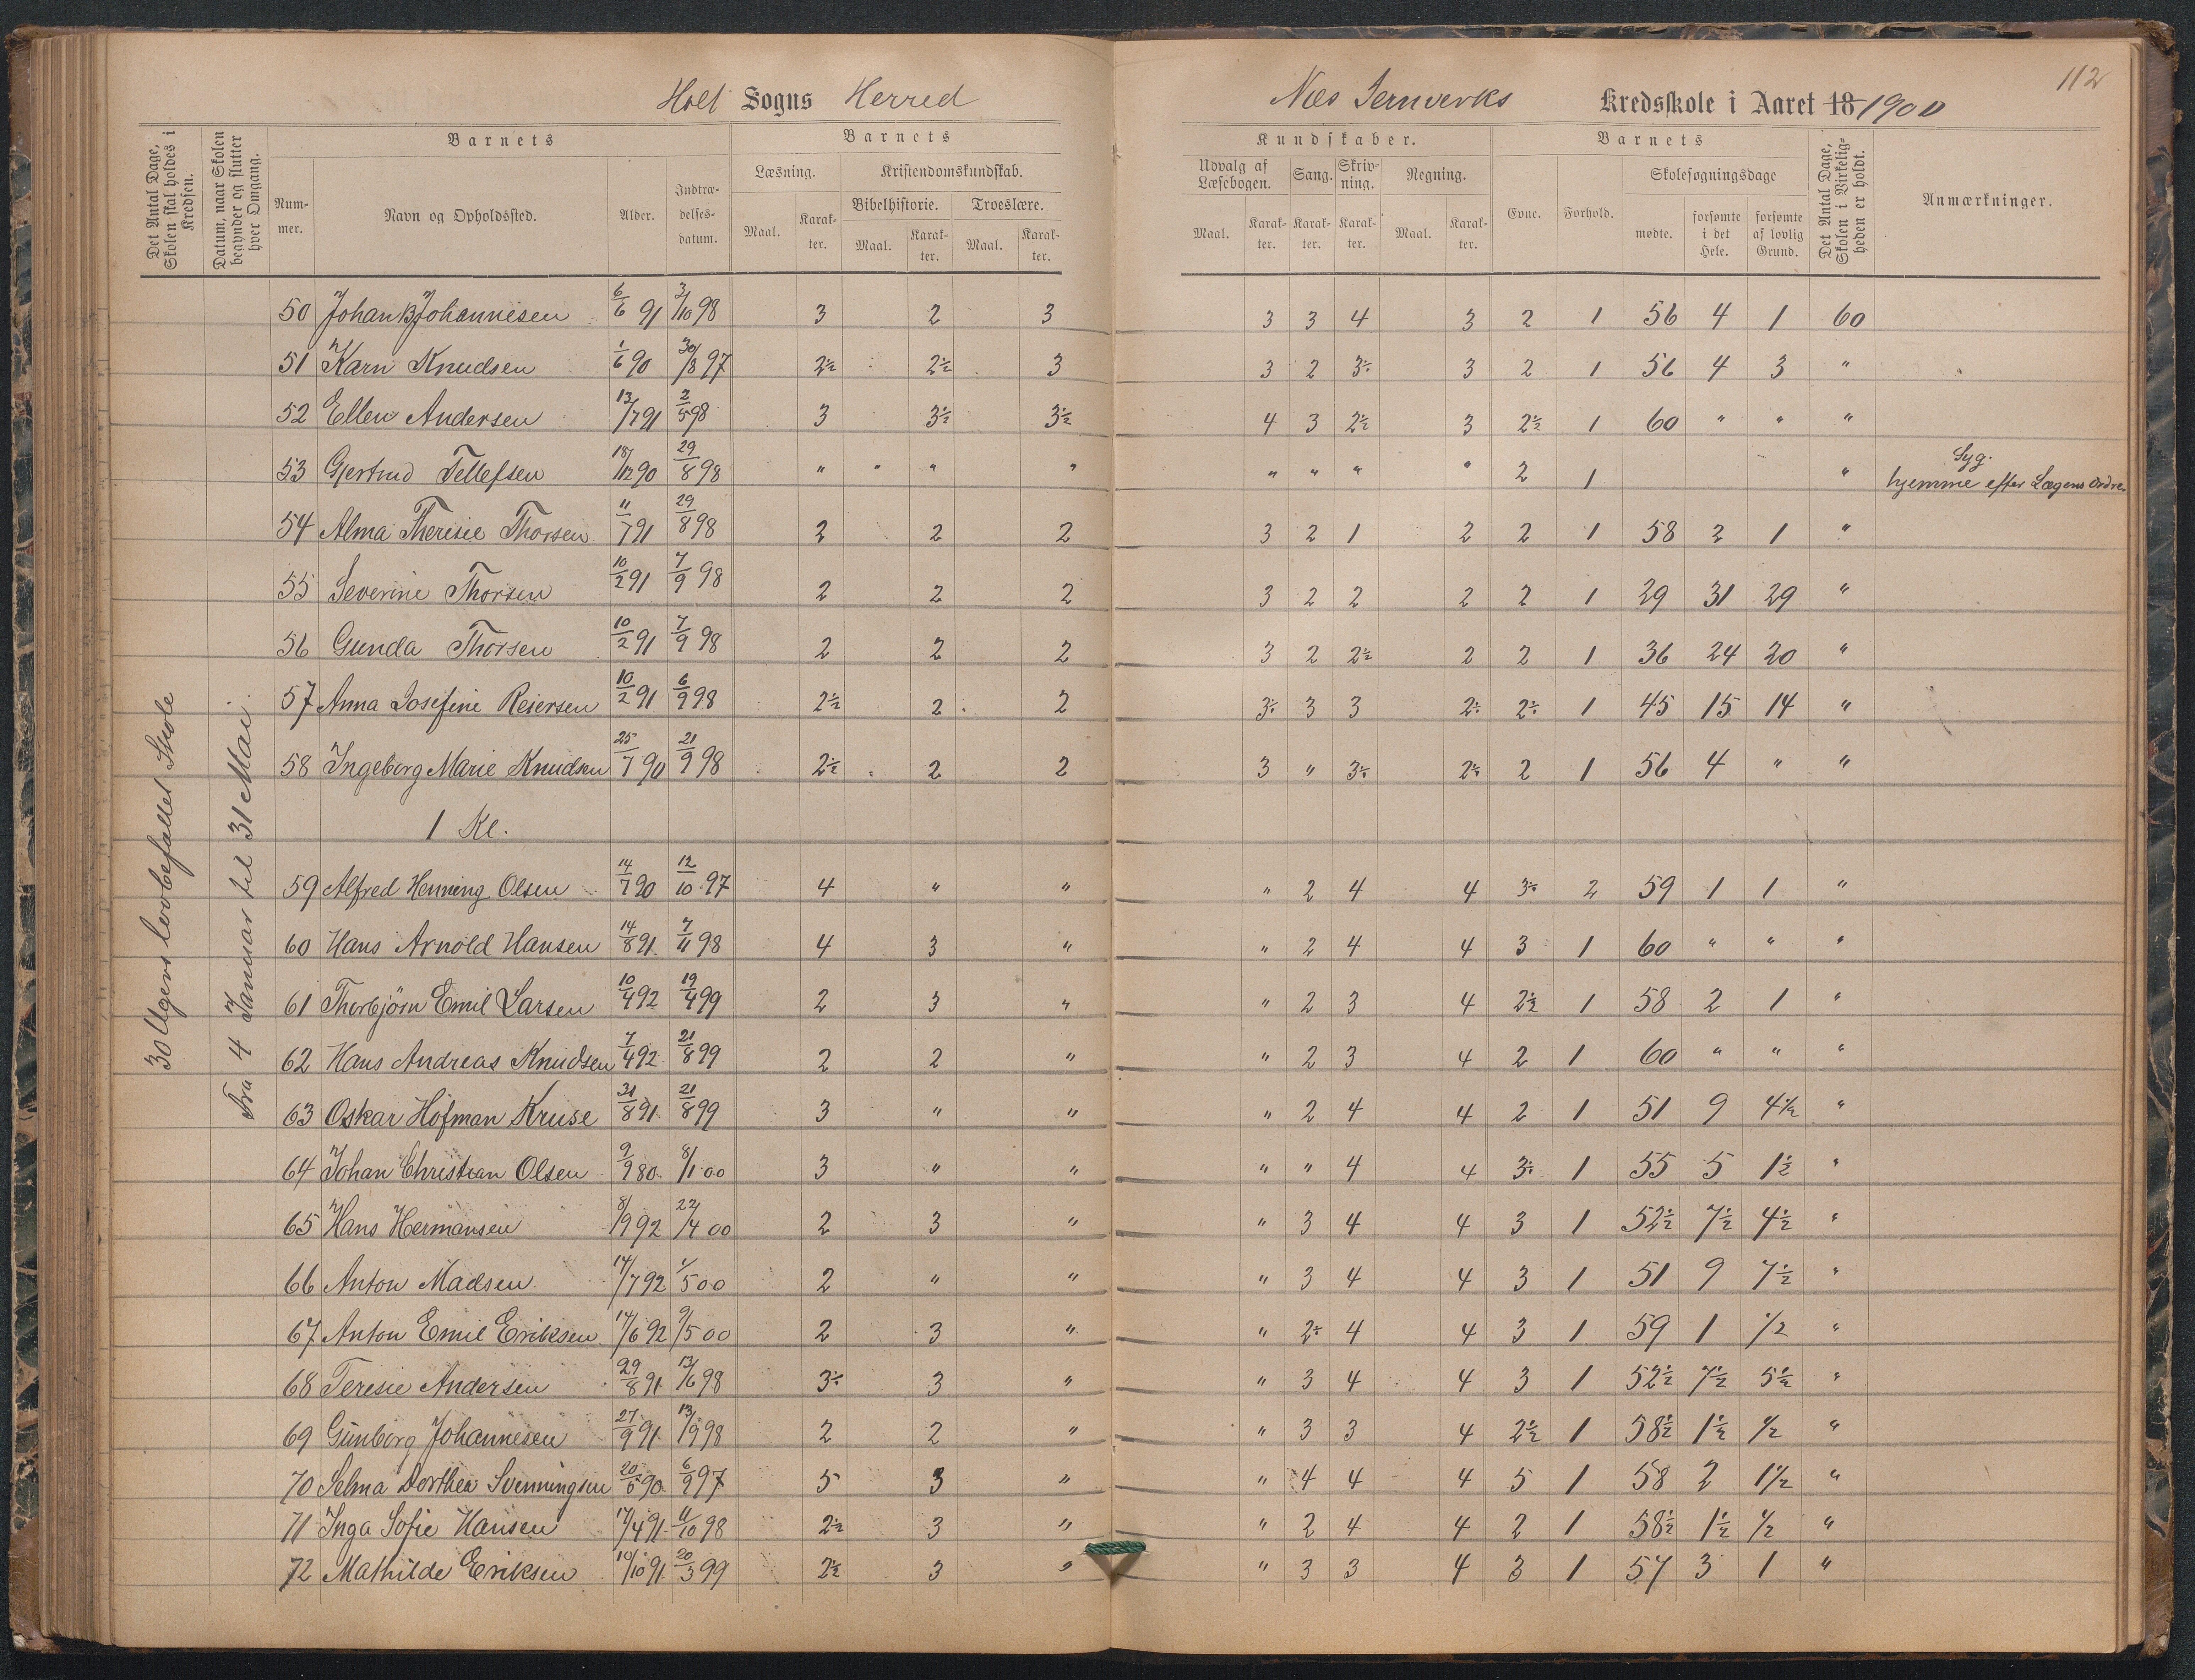 112
Holt Sogns Herred
Næs Jernverks Kredsskole i Aaret 18 1900
Det Antal Dage, Skolen skal holdes i Kredsen.
Datum, naar Skolen begynder og slutter hver Omgang.
Barnets
Nummer.
Navn og Opholdssted.
Alder.
Indtrædelsesdatum.
Barnets
Læsning.
Maal.
Karakter.
Kristendomskundskab.
Bibelhistorie.
Maal.
Karakter.
Troeslære.
Maal.
Karakter.
Kundskaber.
Udvalg af Læsebogen.
Maal.
Karakter.
Sang.
Karakter.
Skrivning.
Karakter.
Regning.
Maal.
Karakter.
Barnets
Evne.
Forhold.
Skolesøgningsdage
mødte.
forsømte i det Hele.
forsømte af lovlig Grund.
Det Antal Dage, Skolen i Virkeligheden er holdt.
Anmærkninger.
30 Ugers lovbefallet Skole
Fra 4 Januar til 31 Mai.
50 Johan B Johannesen 6/6 91 3/10 98 3 2 3 3 3 4 3 2 1 56 4 1 60
51 Karn Knudsen 1/6 90 30/8 97 2½ 2½ 3 3 2 3÷ 3 2 1 56 4 3 "
52 Ellen Andersen 13/7 91 2/5 98 3 3½ 3½ 4 3 2½ 3 2½ 1 60 " " "
53 Gjertrud Tellefsen 18/12 90 29/8 98 " " " " " " " " 2 1 " Syg. hjemme efter Lægens Ordre.
54 Alma Theresie Thorsen 11/7 91 29/8 98 2 2 2 3 2 1 2 2 1 58 2 1 "
55 Severine Thorsen 10/2 91 7/9 98 2 2 2 3 2 2 2 2 1 29 31 29 "
56 Gunda Thorsen 10/2 91 7/9 98 2 2 2 3 2 2½ 2 2 1 36 24 20 "
57 Anna Josefine Reiersen 10/2 91 6/9 98 2½ 2 2 3÷ 3 3 2÷ 2÷ 1 45 15 14 "
58 Ingeborg Marie Knudsen 25/7 90 21/9 98 2½ 2 2 3 " 3÷ 2÷ 2 1 56 4 " "
1 Kl.
59 Alfred Henning Olsen 14/7 90 12/10 97 4 " " " 2 4 4 3÷ 2 59 1 1 "
60 Hans Arnold Hansen 14/8 91 7/11 98 4 3 " " 2 4 4 3 1 60 " " "
61 Thorbjörn Emil Larsen 10/4 92 19/4 99 2 3 " " 2 3 4 2½ 1 58 2 1 "
62 Hans Andreas Knudsen 7/4 92 21/8 99 2 2 " " 2 3 4 2 1 60 " " "
63 Oskar Hofman Kruse 31/8 91 21/8 99 3 " " " 2 4 4 2 1 51 9 4½ "
64 Johan Christian Olsen 9/9 80 8/1 00 3 " " " " 4 4 3÷ 1 55 5 1½ "
65 Hans Hermansen 8/9 92 22/4 00 2 3 " " 3 4 4 3 1 52½ 7½ 4½ "
66 Anton Madsen 14/7 92 1/5 00 2 " " " 3 4 4 3 1 51 9 7½ "
67 Anton Emil Eriksen 14/6 92 9/5 00 2 3 " " 2÷ 4 4 3 1 59 1 ½ "
68 Teresie Andersen 29/8 91 13/6 98 3÷ 3 " " 3 4 4 3 1 52½ 7½ 5½ "
69 Gunborg Johannesen 27/9 91 13/9 98 2 2 " " 3 3 4 2½ 1 58½ 1½ ½ "
70 Selma Dorthea Svenningsen 20/5 90 6/9 97 5 3 " " 4 4 4 5 1 58 2 1½ "
71 Inga Sofie Hansen 17/4 91 11/10 98 2½ 3 " " 2 4 4 2 1 58½ 1½ ½ "
72 Mathilde Eriksen 10/10 91 20/3 99 2½ 3 " " 3 3 4 3 1 57 3 1 "